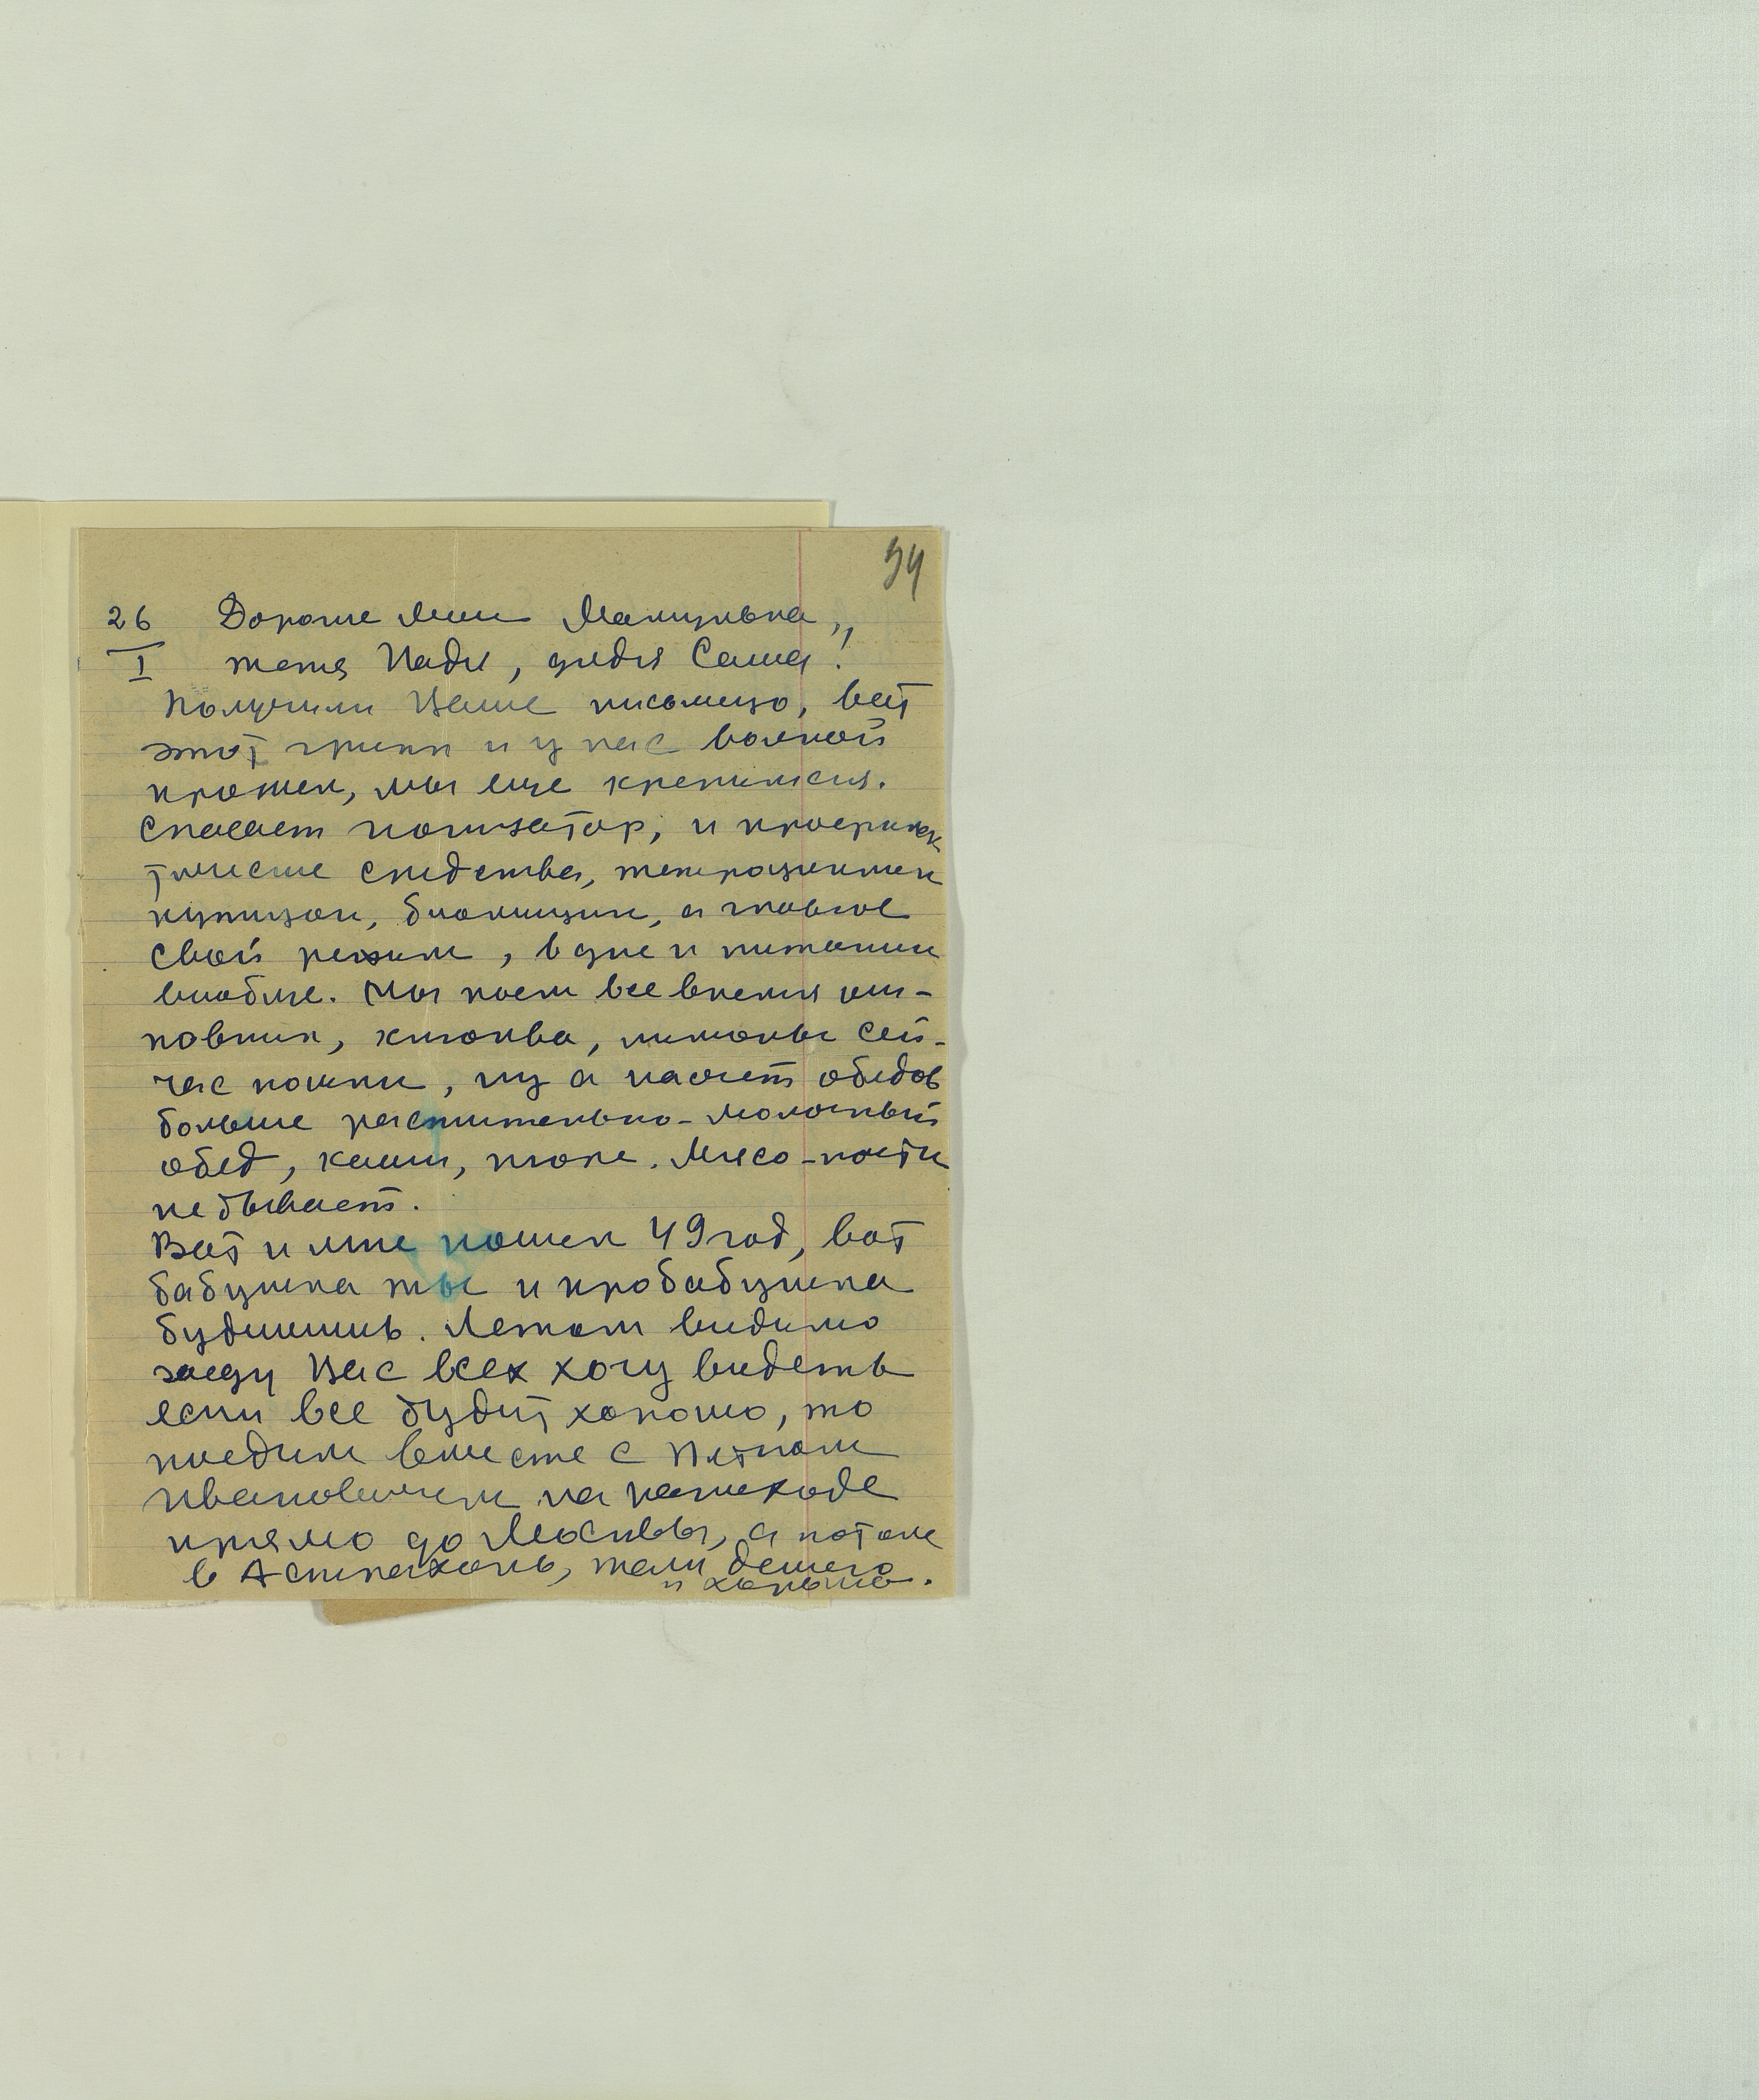 94
26 Дорогие мои Мамулька,,
I тетя Надя, дядя Саша!
Получили Ваше письмецо, вот
этот грипп и у нас волной
прошел, мы еще крепимся.
Спасает ионизатор, и профилак
тические средства, тетрациклин
купузон, биомицин, а главное
свой режим, в дне и питании
вообще. Мы пьем все время ши-
повник, клюква, лимоны сей-
час пошли, ну а насчет обедов
больше растительно-молочный
обед, каши, пюре. Мясо-почти
не бывает.
Вот и мне пошел 49 год, вот
бабушка ты и пробабушка
будишишь. Летом видимо
заеду Вас всех хочу видеть
если все будит хорошо, то
поедим вместе с Петром
Ивановичем на пароходе
прямо до Москвы, а потом
в Астрахань, там дешего
и хорошо.